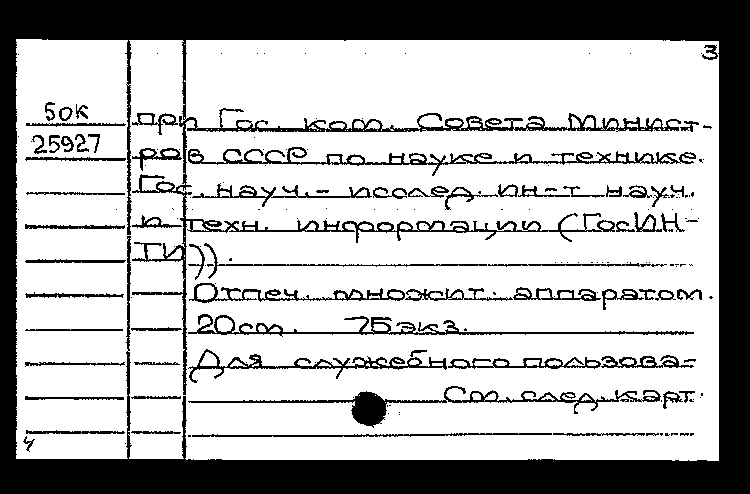 3
50К
25927
при Гос. ком. Совета Минист-
ров СССР по науке и технике.
Гос. науч.- исслед. ин-т науч.
и техн. информации (ГосИН-
ТИ)).
Отпеч. множит. аппаратом.
20см. 75экз.
Для служебного пользова-
См. след. карт.
4